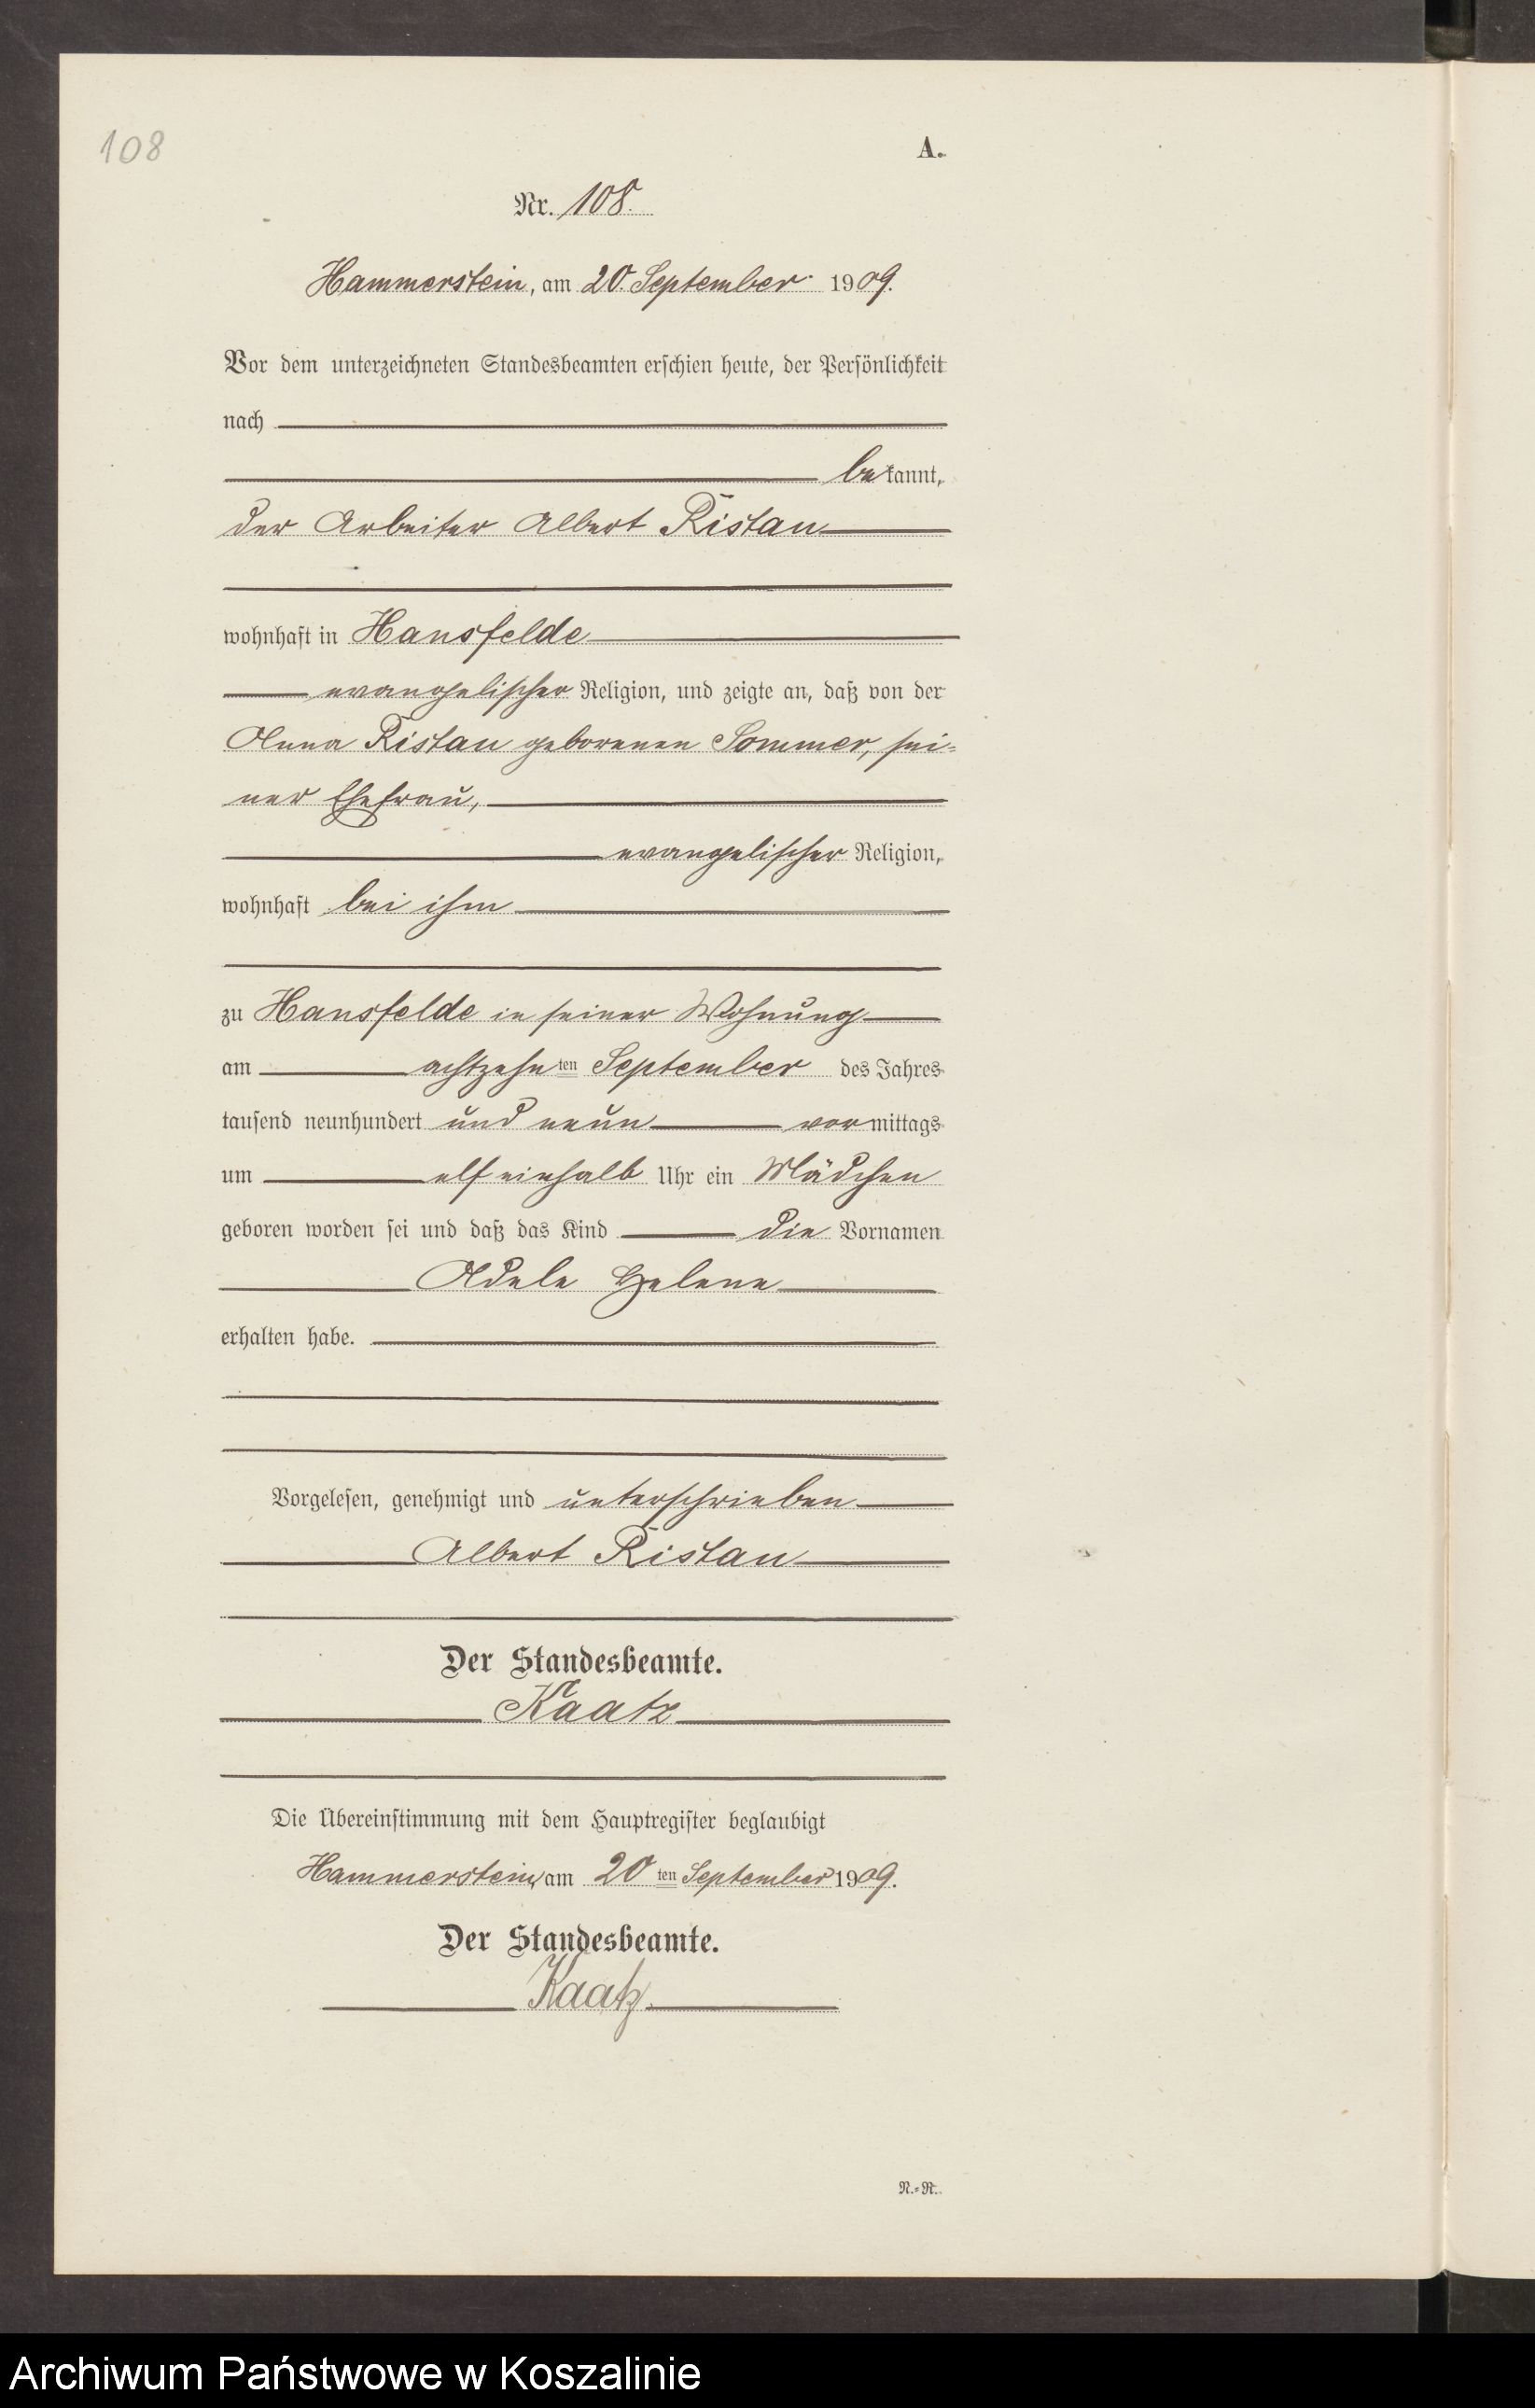 108
A.
Nr. 108.
Hammerstein, am 20. September 1909.
Vor dem unterzeichneten Standesbeamten erschien heute, der Persönlichkeit
nach
bekannt,
der Arbeiter Albert Ristau
wohnhaft in Hansfelde
evangelischer Religion, und zeigte an, daß von der
Anna Ristau geborenen Sommer, sei-
ner Ehefrau,
evangelischer Religion,
wohnhaft bei ihm
zu Hansfelde in seiner Wohnung
am achtzehnten September des Jahres
tausend neunhundert und neun vormittags
um elfeinhalb Uhr ein Mädchen
geboren worden sei und daß das Kind die Vornamen
Adele Helene
erhalten habe.
Vorgelesen, genehmigt und unterschrieben
Albert Ristau
Der Standesbeamte.
Kaatz
Die Übereinstimmung mit dem Hauptregister beglaubigt
Hammerstein, am 20ten September 1909.
Der Standesbeamte.
Kaatz.
N.-R.
Archiwum Państwowe w Koszalinie